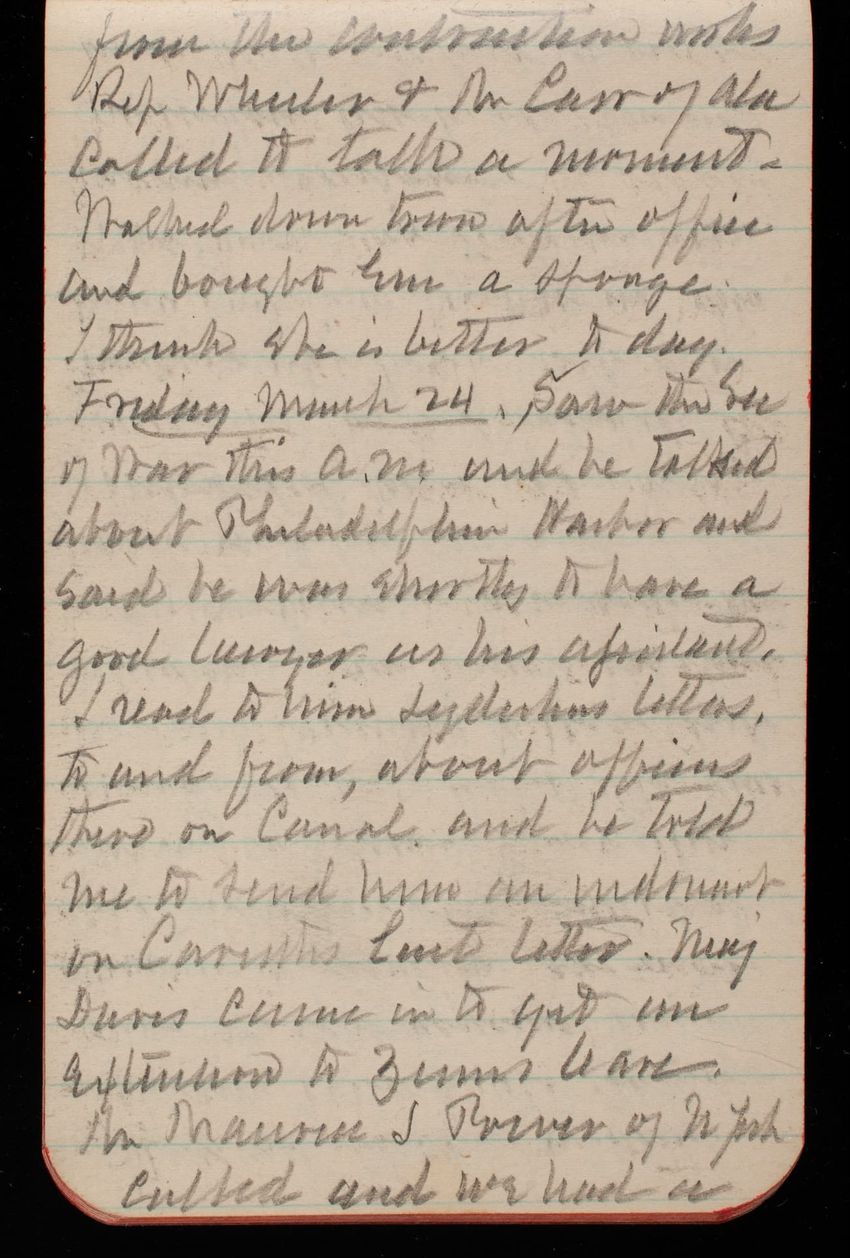 from the construction works
Rep Wheeler & Mr Carr of Ala
called to talk a moment -
Walked down town after office
and bought Em a sponge.
I think she is better to day.
Friday March 24. Saw the Sec
of War this A.M. and he talked
about Philadelphia Harbor and
said he was shortly to have a
good lawyer as his assistant.
I read to him letters,
to and from, about officers
there on Canal. and he told
me to send him an
on last letter. Maj
Davis came in to get an
Extension to Zinns leave.
Mr Maurice J Power of N York
called and we had a